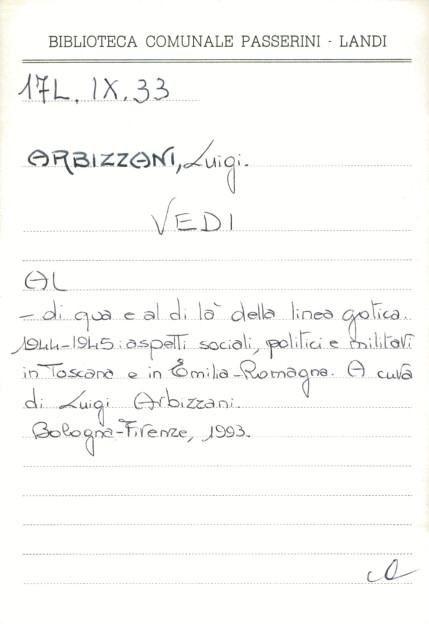 BIBLIOTECA COMUNALE PASSERINI - LANDI
17L. IX. 33
ARBIZZANI, Luigi.
VEDI
AL
- di qua e al di là della linea gotica.
1944-1945: aspetti sociali, politici e militari
in Toscana e in Emilia-Romagna. A cura
di Luigi Arbizzani.
Bologna-Firenze, 1993.